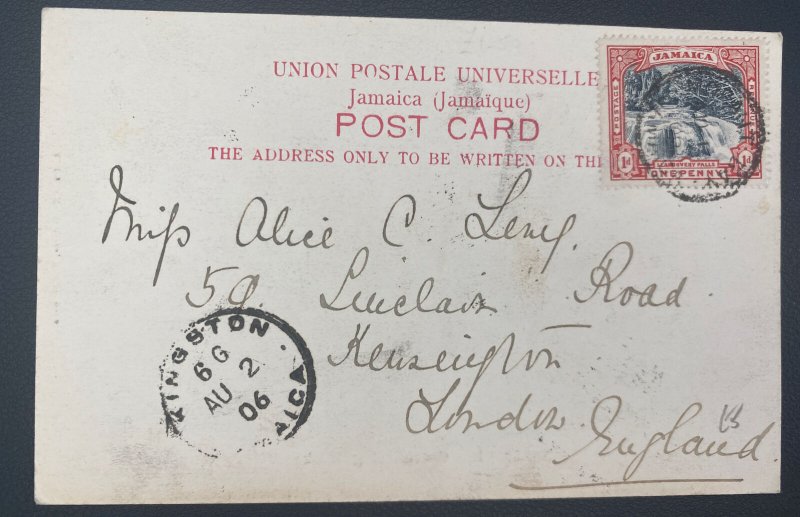 UNION POSTALE UNIVERSELLE
Jamaica (Jamaïque)
POST CARD
THE ADDRESS ONLY TO BE WRITTEN ON TH
JAMAICA
POSTAGE
LLANDOVERY FALLS
1d
1d
ONE PENNY
Miss Alice C. Leng.
59. Sinclair Road.
Kensington
London.
England
KINGSTON.
6 G
AU 2
06
AICA